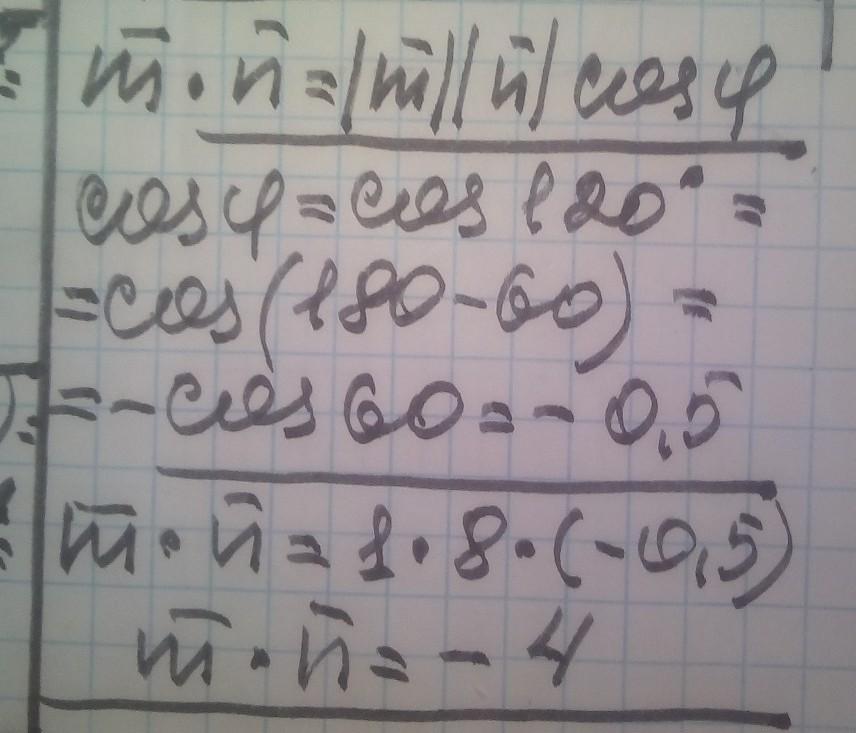 m̄ · n̄ = |m̄||n̄| cos φ
cos φ = cos 120° =
= cos(180 - 60) =
= - cos 60 = - 0,5
m̄ · n̄ = 1 · 8 · (- 0,5)
m̄ · n̄ = - 4